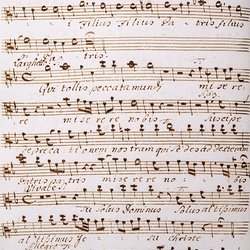 Filius Filius Pa tris filius
Patris.
Larghetto
Qui tollis peccata mundi mi se re
re mi se re re no bis Suscipe
depreca ti onem nos tram qui se des ad dexteram
Patris mi se re re no bis
Vivace
tu solus Dominus Solus altissimus
altissimus Je su christe